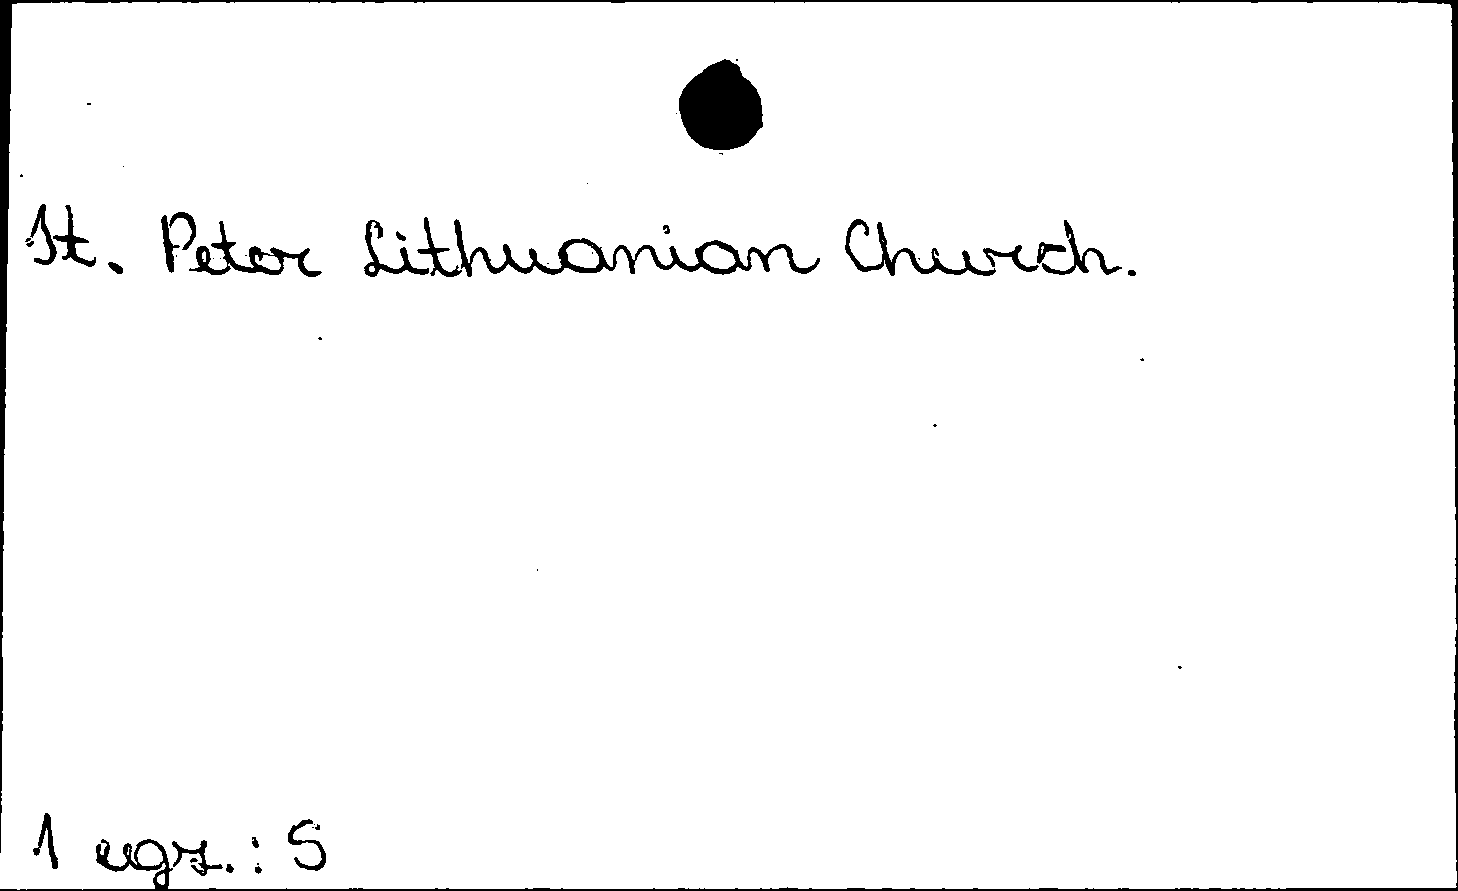 St. Peter Lithuanian Church.
1 egz.: S